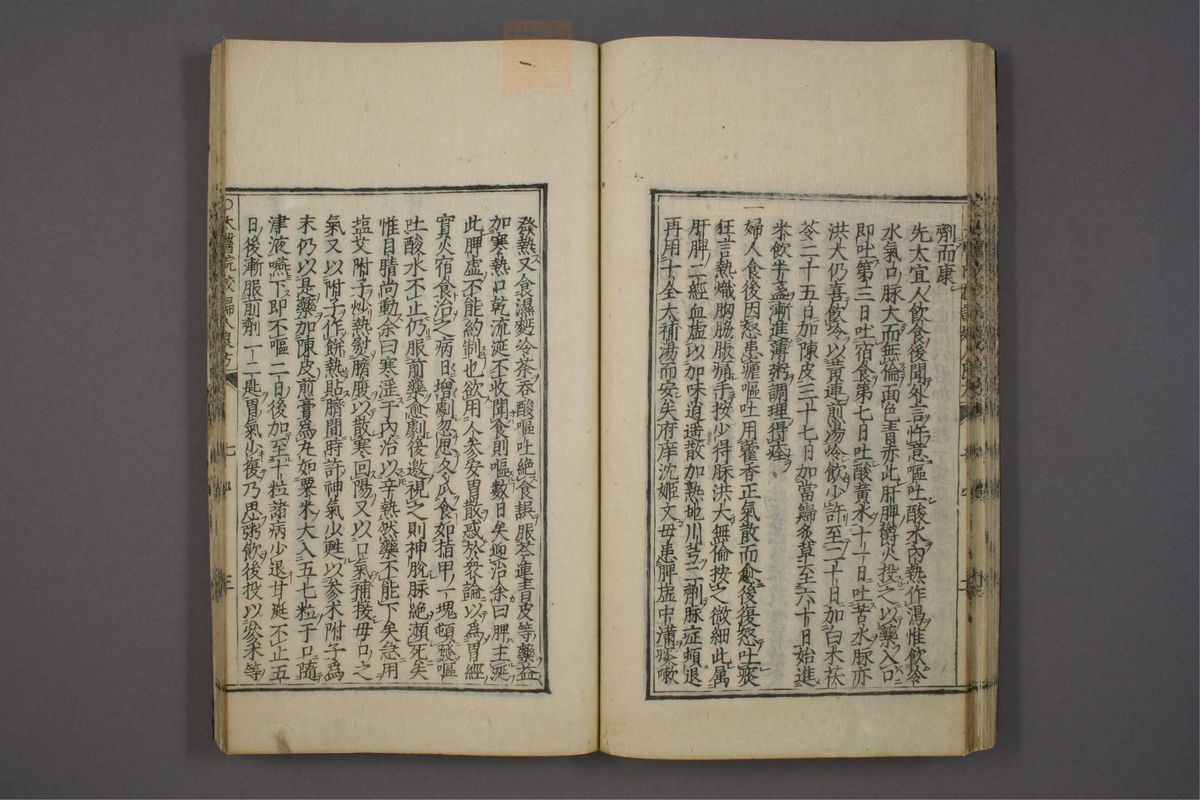 劑而康
先太宜人飲食後聞外言忤意嘔吐酸水内熱作渴惟飲冷
水氣口脉大而無倫面色青赤此肝脾鬱火投之以藥入口
即吐第三日吐宿食第七日吐酸黄水十一日吐苦水脉亦
洪大仍喜飲冷以黄連煎湯冷飲少許至二十日加白术茯
苓二十五日加陳皮三十七日加當歸炙草至六十日始進
米飲半盞漸進薄粥調理得痊
一婦人食後因怒患瘧嘔吐用藿香正氣散而愈後復怒吐痰
狂言熱熾胸脇脹痛手按少得脉洪大無倫按之微細此属
肝脾二經血虚以加味逍遥散加熟地川芎二劑脉症頓退
再用十全大補湯而安矣府庠沈姬文母患脾虚中滿痰嗽
發熱又食濕麪冷茶吞酸嘔吐絶食誤服芩連青皮等藥益
加寒熱口乾流涎不收聞食則嘔數日矣迎治余曰脾主涎
此脾虚不能約制也欲用人參安胃散惑於衆論以爲胃經
實火宿食治之病日增劇忽思冬瓜食如指甲一塊頓發嘔
吐酸水不止仍服前藥愈劇後邀視之則神脱脉絶瀕死矣
惟目睛尚動余曰寒淫于内治以辛熱然藥不能下矣急用
塩艾附子炒熱熨臍腹以散寒回陽又以口氣補接母口之
氣又以附子作餅熱貼臍間時許神氣少甦以參术附子爲
末仍以是藥加陳皮煎膏爲丸如粟米大入五七粒于口隨
津液嚥下即不嘔二日後加至十粒諸病少退甘涎不止五
日後漸服前劑一二匙胃氣少復乃思粥飲後投以參术等
○太醫院校婦人良方
七